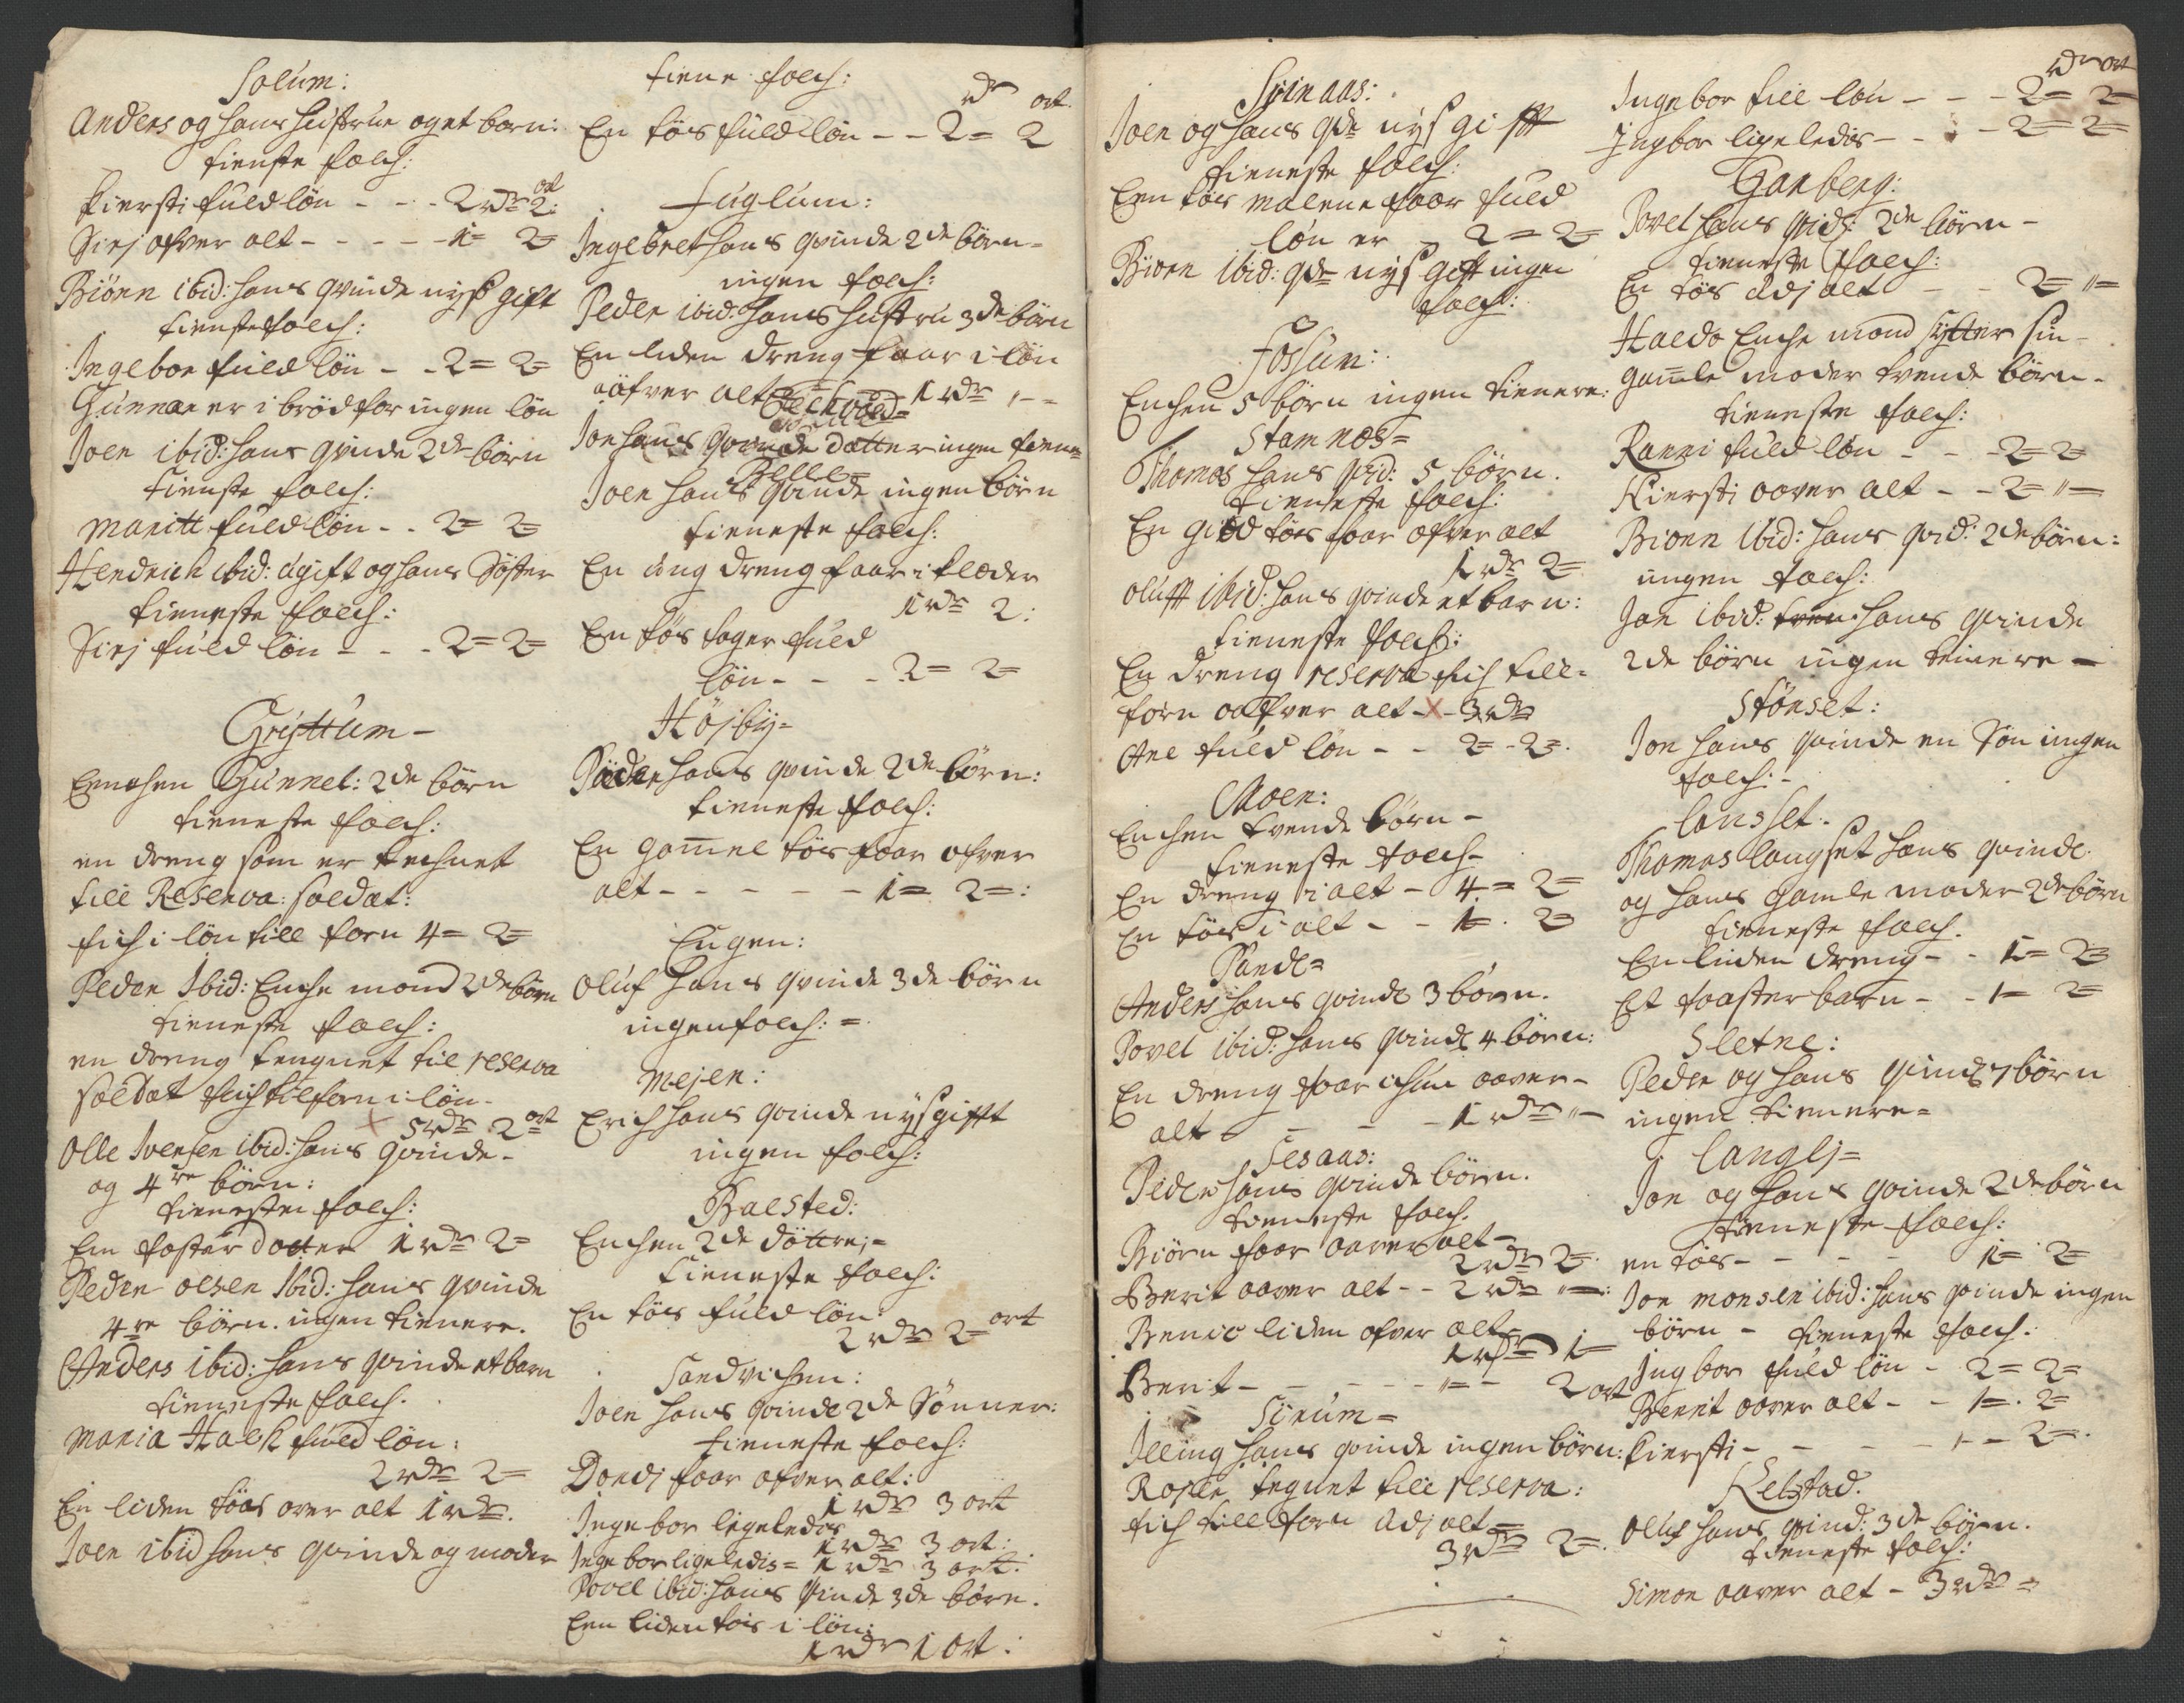 Solum:
Anders og hans hustrue og et barn:
tienste folch:
Kiersti fuld løn - - - 2 rdr 2: ort
Sirj ofver alt - - - - - 1= 2=
Biørn ibid: hans qvinde nys gift
tienste folch:
Ingebor fuld løn - - 2= 2=
Gunnar er i brød for ingen løn
Joen ibid: hans qvinde 2de børn
tienste folch:
Maritt fuld løn - - 2= 2=
Hendrich ibid: ugift og hans Søster
tieneste folch:
Sirj fuld løn - - - 2= 2=
Grjttum -
Enchen Gunnel: 2de børn
tieneste folch:
en dreng som er technet
till Reserva: soldat:
fich i løn till forn 4= 2=
Peder Ibid: Enche mand 2de børn
tieneste folch:
en dreng tegnet til reserva
soldat fich tilforn i løn -
5 rdr 2 ort
Olle Iversen ibid: hans qvinde -
og 4re børn:
tieneste folch:
Em foster dotter 1 rdr 2=
Peder olsen Ibid: hans qvinde
4re børn. ingen tienere.
Anders ibid: hans qvinde et barn
tieneste folch.
Maria Halch fuld løn:
2 rdr 2=
En liden töes over alt 1 rdr.
Joen ibid hans qvinde og moder
tiene folch:
rdr ort.
En tös fuld løn - - 2= 2
Fuglum:
Ingebret hans qvinde 2de børn -
ingen folch:
Peder ibid: hans hustru 3de børn
En liden dreng faar i løn
ofver alt 1 rdr - -
Jon hans qvinde datter ingen tiene
Selle=
Joen hans qvinde ingen børn
tieneste folch:
En ung dreng faar i klæder
1 rdr 2:
En tøs tager fuld
løn - - - 2= 2=
Højby=
Peder hans qvinde 2de børn:
tieneste folch:
En gammel tös faar ofver
alt - - - - - 1= 2=:
Eugen:
Oluf hans qvinde 3de børn
ingen folch: =
Mejen:
Erich hans qvinde nys gifft
ingen folch:
Balsted:
Enchen 2de döttre; =
tieneste folch:
En tös fuld løn:
2 rdr 2= ort
Sandvichen:
Joen hans qvinde 2de Sønner:
tieneste folch:
Dordj faar ofver alt:
1 rdr 3 ort
Ingebor ligeledes
1 rdr 3 ort:
Ingebor ligeledis = 1 rdr 3 ort:
Povel ibid: hans qvinde 3de børn.
Een liden tøs i løn:
1 rdr 1 ort:
Svinaas:
Joen og hans qde nys gifft
tieneste folch:
Een tös Malene faar fuld
løn er - 2= 2=
Biørn ibid: qde nys gift ingen
folch:
Fossum:
Enchen 5 børn ingen tienere:
Stamnes=
Thomas hans qvid: 5 børn.
tieneste folch:
En giæd tös faar ofver alt
1 rdr 2=
Oluff ibid: hans qvinde et barn:
tieneste folch:
En dreng reserva fich till=
forn ofver alt - x - 3 rdr
Ane fuld løn - - 2= - 2=.
Moen:
Enchen tvende børn -
tieneste folch -
En dreng i alt - 4= 2=
En tös i alt - - 1=. 2=
Sande=
Anders hans qvinde 3 børn.
Povel ibid: hans qvinde 4 børn:
En dreng faar ichun aaver -
alt - - - - 1 rdr " -
Tesaas:
Peder hans qvinde børn.
tieneste folch.
Biørn faar aaver alt -
2 rdr 2=.
Berit aaver alt - - 2 rdr " -:
Benic liden ofver alt -
1 rdr 1=
Berit - - - - - "= - 2 ort
Sirum=
Illing hans qvinde ingen børn:
Rasse tegnet till reserva:
fich till forn udj alt =
3 rdr 2=.
rdr ort
Ingebor till løn - - - 2= 2=
Ingbor ligeledis - - - - 2= 2=
Garberg:
Povel hans qvid: 2de børn -
tieneste folch:
En tös udj alt - - 2= "=
Haldo Enche mand sytter sin -
gamle moder tvende børn -
tieneste folch:
Ranni fuld løn - - - 2= 2=
Kiersti aaver alt - - 2= "=
Biørn Ibid: hans qvid: 2de børn:
ingen folch:
Jon ibid: hans qvinde
2de børn ingen teinere -
Stønset:
Jon hans qvinde en Søn ingen
folch: -
Longset.
Thomas langset hans qvinde
og hans gamle moder 2de børn
tieneste folch.
En liden dreng - - 1= 2=
Et faaster barn - - 1= 2=
Sletne:
Peder og hans qvinde 7 børn
ingen tienere=
Langlj=
Jon og hans qvinde 2de børn
tieneste folch:
en tös - - - - 1= 2=
Jon monsen ibid: hans qvinde ingen
børn - tieneste folch:
Ingbor fuld løn - 2= 2=
Berit aaver alt - - 1=. 2=
Kiersti - - - - - 1 - - 2=.
Kelstad.
Oluf hans qvind: 3de børn.
tieneste folch:
Simon aaver alt - 3 rdr =